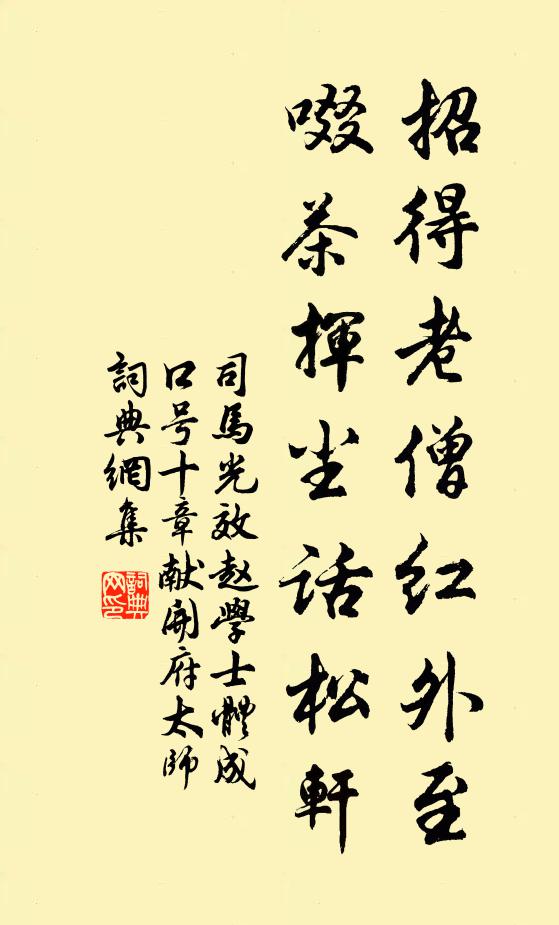 招得老僧红外至
啜茶揮尘话松軒
司馬光效赵學士體成
口号十章献開府太師
詞典網集
詞典
网印